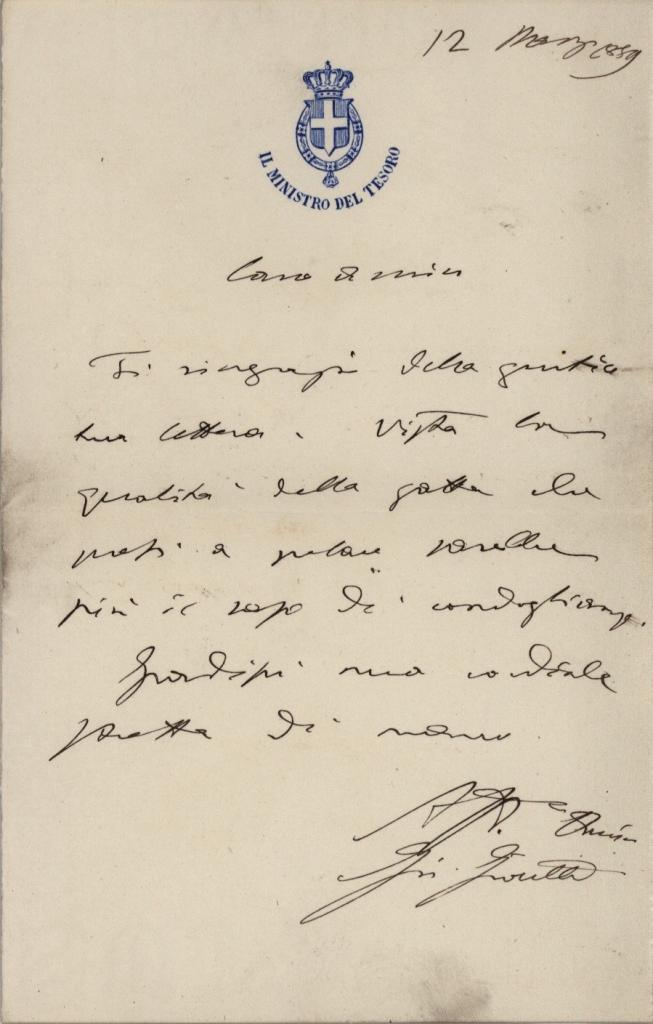 12 Marzo 1889
IL MINISTRO DEL TESORO
Caro amico
Ti ringrazio della gentile
tua lettera. Vista la
qualità della gatta che
presi a pelare sarebbe
più il caso di condoglianze.
Gradisci una cordiale
stretta di mano.
Aff. Amico
Gio. Giolitti